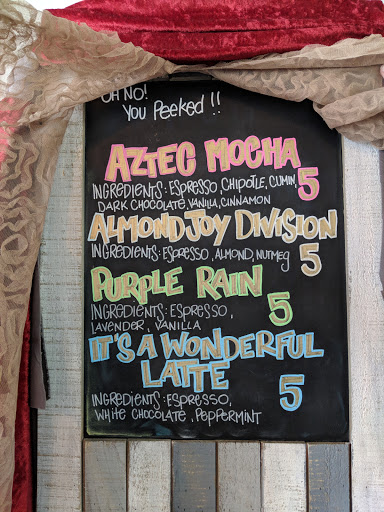 OH NO!
YOU PEEKED !!
AZTEC MOCHA
INGREDIENTS: ESPRESSO, CHIPOTLE, CUMIN, 5
DARK CHOCOLATE, VANILA, CINNAMON
ALMOND JOY DIVISION
INGREDIENTS: ESPRESSO, ALMOND, NUTMEG 5
PURPLE RAIN
INGREDIENTS: ESPRESSO, 5
LAVENDER, VANILLA
IT'S A WONDERFUL
LATTE 5
INGREDIENTS: ESPRESSO,
WHITE CHOCOLATE, PEPPERMINT